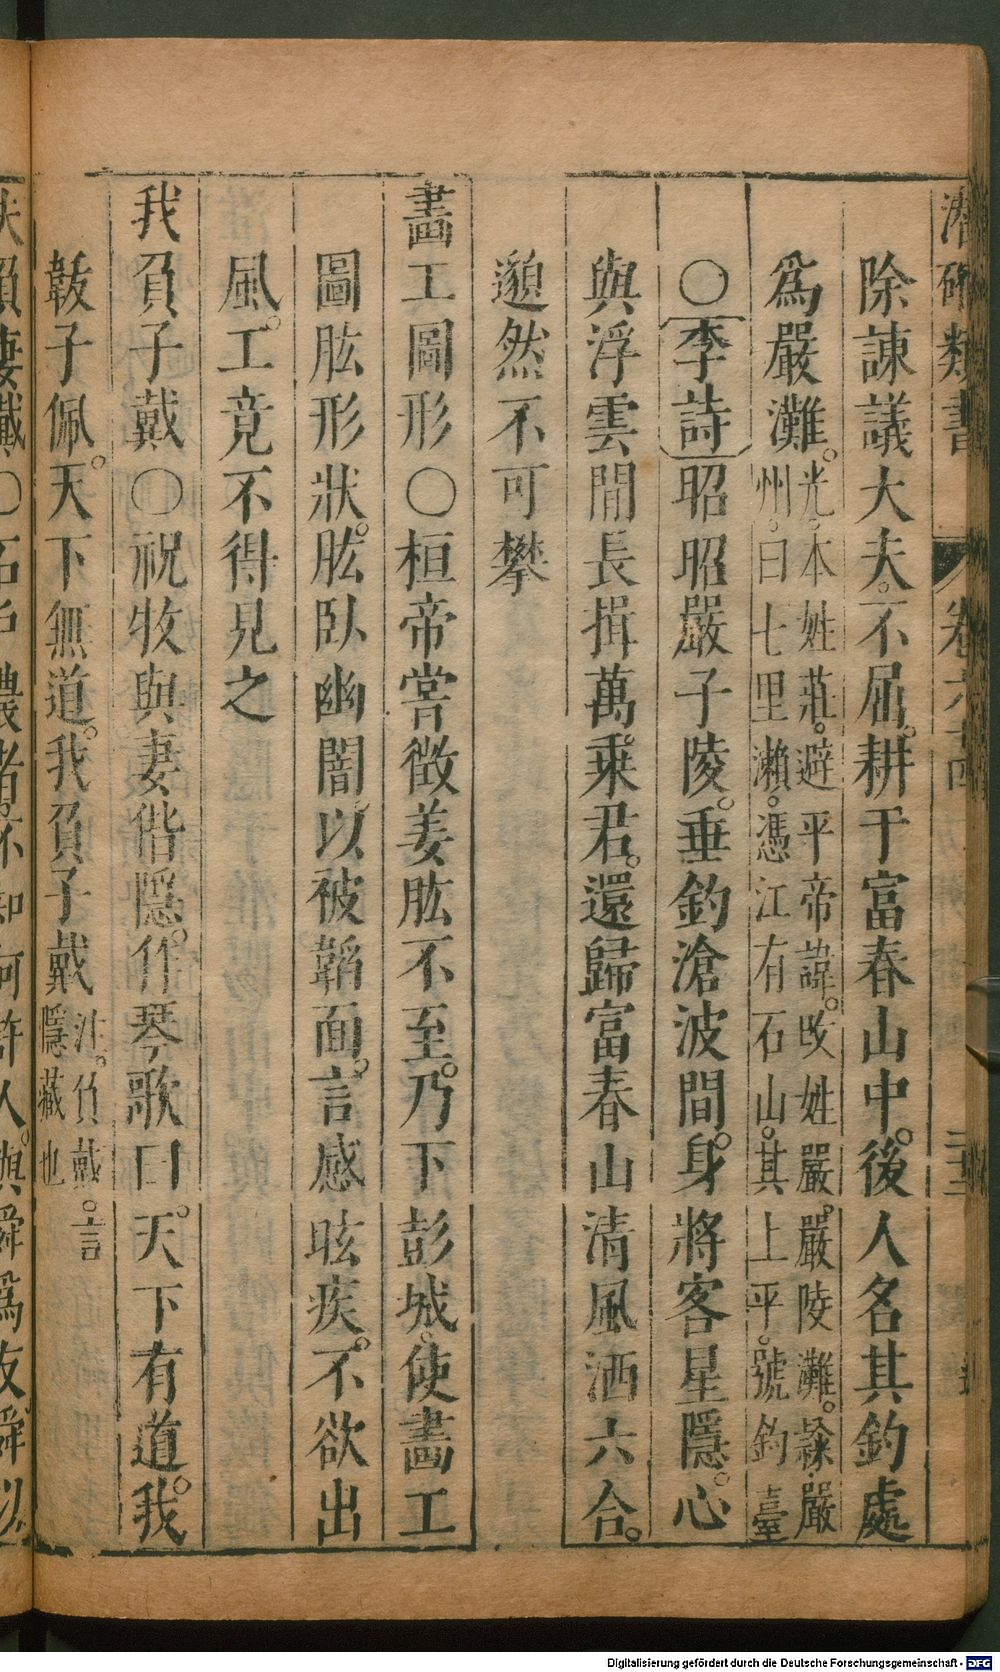 潛確類書 卷六十四
除諫議大夫。不屈。耕于富春山中。後人名其釣處
爲嚴灘。光。本姓莊。避平帝諱。改姓嚴。嚴陵灘。㵎嚴
州。曰七里瀨。憑江有石山。其上平。號釣臺
○李詩昭昭嚴子陵。垂釣滄波間。身將客星隱。心
與浮雲閒長揖萬乗君。還歸富春山清風洒六合。
邈然不可攀
畫工圖形○桓帝嘗徵姜肱不至。乃下彭城。使畫工
圖肱形狀。肱臥幽闇以被韜面。言感眩疾。不欲出
風。工竟不得見之
我負子戴○祝牧與妻偕隱。作琴歌曰。天下有道。我
黻子佩。天下無道。我負子戴注。負戴。言
隱藏也
夫負妻戴○石戶農者。不知何許人。與舜爲友。舜以
Digitalisierung gefördert durch die Deutsche Forschungsgemeinschaft - DFG